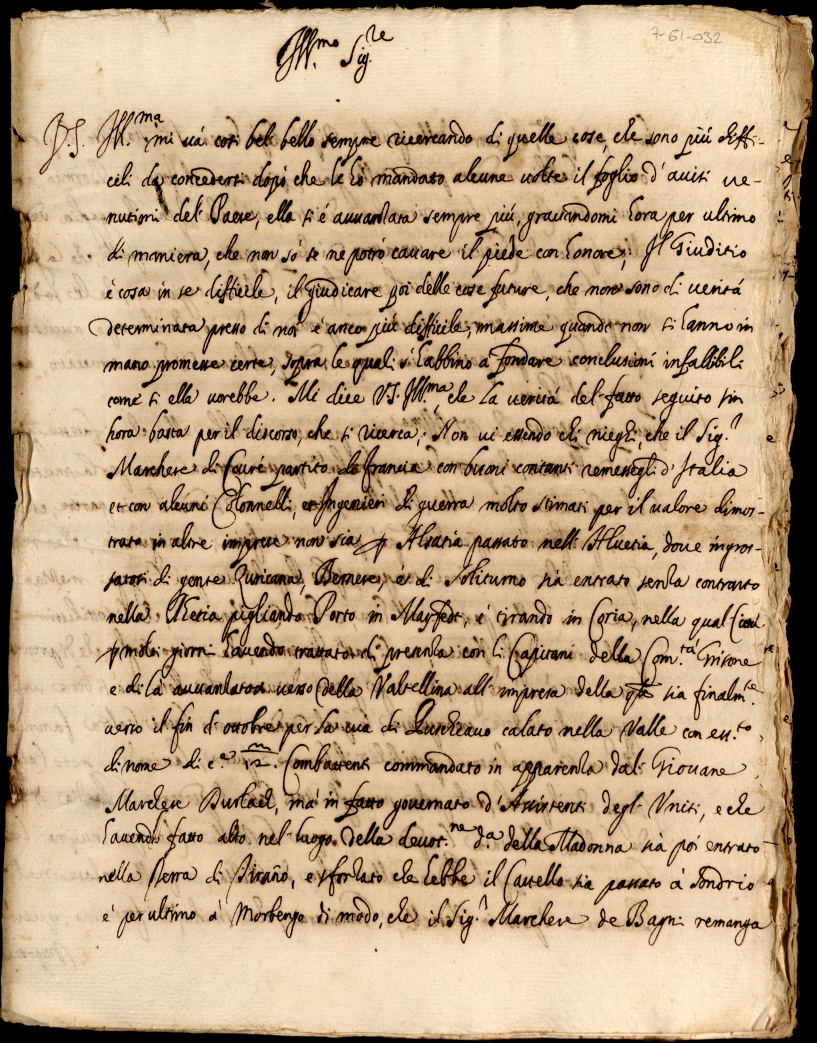 7-61-032
Ill.mo Sig.re
V.S. Ill.ma mi vá cosi bel bello sempre ricercando di quelle cose, che sono piú diffi-
cili da concedersi dopó che le hó mandato alcune volte il foglio d'avisi ve-
nutomi del Paese, ella si é avvanzata sempre piú, gravandomi hora per ultimo
di maniera, che non só se ne potró cavare il piede con honore; Il Giuditio
é cosa in se difficile, il giudicare poi delle cose future, che non sono di veritá
determinata presso di noi é anco piú difficile, massime quando non si hanno in
mano promesse certe, sopra le quali s'habbino á fondare conclusioni infallibili
come si ella vorebbe. Mi dice V.S. Ill.ma, che la veritá del fatto seguito sin
hora basta per il discorso, che si ricerca; Non vi essendo chi nieghi, che il Sig.r
Marchese di Couré partito da Francia con buoni contanti d'Italia
et con alcuni Colonnelli, et Ingenieri di guerra molto stimati per il valore dimos-
trato in altre imprese non sia p Alsatia passato nell'Alvetia, dove ingros-
satosi di gente Zuricana, Bernese, é di Soliturno sia entrato senza contrasto
nella Retia pigliando Posto in Mayfelt, é tirando in Coria, nella qual
p molti giorni havendo trattato di presenza con li Capitani della Com.tá Grisone
e di lá avvanzatosi verso della Valtellina all'impresa della qle sia finalm.te
verso il fin d'ottobre per la via di Puschiavo calato nella Valle con ess.to
di nome di c.a 12 m Combattenti commandato in apparenza dal Giovane
Marchese Durlach, má in fatto governato d'Assistenti degl'Uniti, e che
havendo fatto alto nel luogo della devot.ne d.a della Madonna sia poi entrato
nella Terra di Tirano, e sforzato che hebbe il Castello sia passato á Sondrio
é per ultimo á Morbengo di modo, che il Sig.r Marchese de Bagni remanga